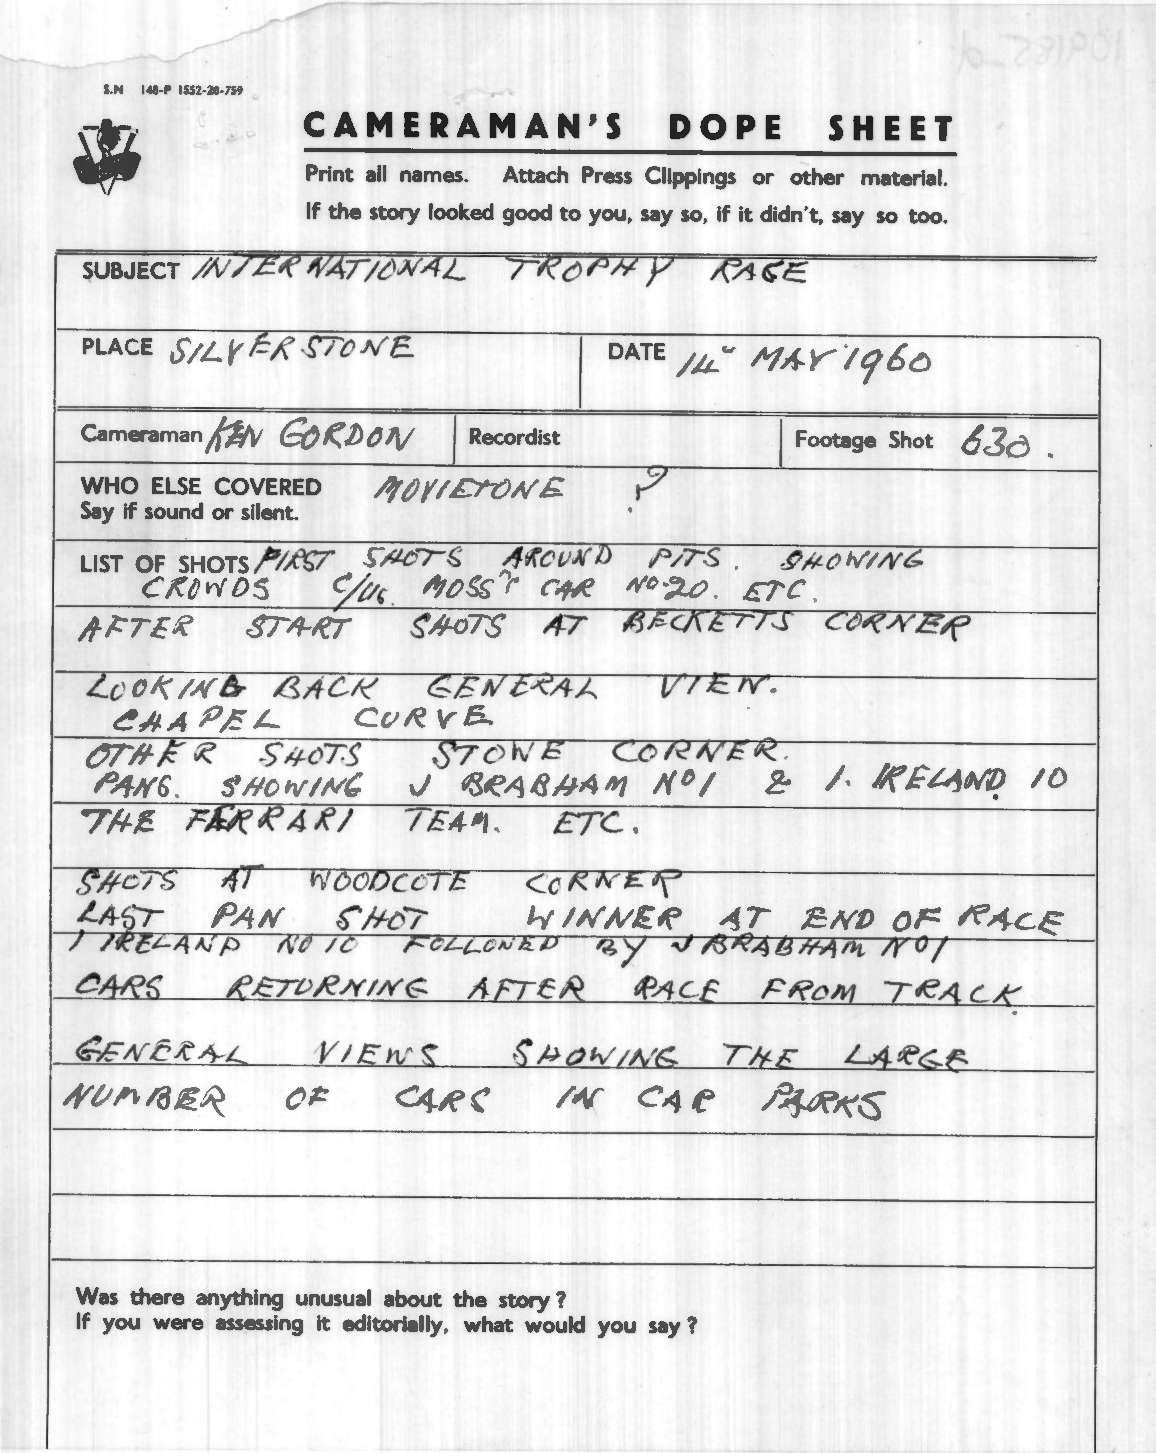 S.N 148-P 1552-28-759
CAMERAMAN'S DOPE SHEET
Print all names. Attach Press Clippings or other material.
If the story looked good to you, say so, if it didn't, say so too.
SUBJECT INTERNATIONAL TROPHY RACE
PLACE SILVERSTONE DATE 14" MAY 1960
Cameraman KEN GORDON Recordist Footage Shot 630.
WHO ELSE COVERED MOVIETONE ?
Say if sound or silent.
LIST OF SHOTS FIRST SHOTS AROUND PITS. SHOWING
CROWDS C/Us. MOSS'S CAR NO 20. ETC.
AFTER START SHOTS AT BECKETTS CORNER
LOOKING BACK GENERAL VIEW.
CHAPEL CURVE
OTHER SHOTS STOWE CORNER.
PANS. SHOWING J BRABHAM NO 1 & I. IRELAND. 10
THE FERRARI TEAM. ETC.
SHOTS AT WOODCOTE CORNER
LAST PAN SHOT WINNER AT END OF RACE
I IRELAND NO 10 FOLLOWED BY J BRABHAM NO 1
CARS RETURNING AFTER RACE FROM TRACK.
GENERAL VIEWS SHOWING THE LARGE
NUMBER OF CARS IN CAR PARKS
Was there anything unusual about the story?
If you were assessing it editorially, what would you say?